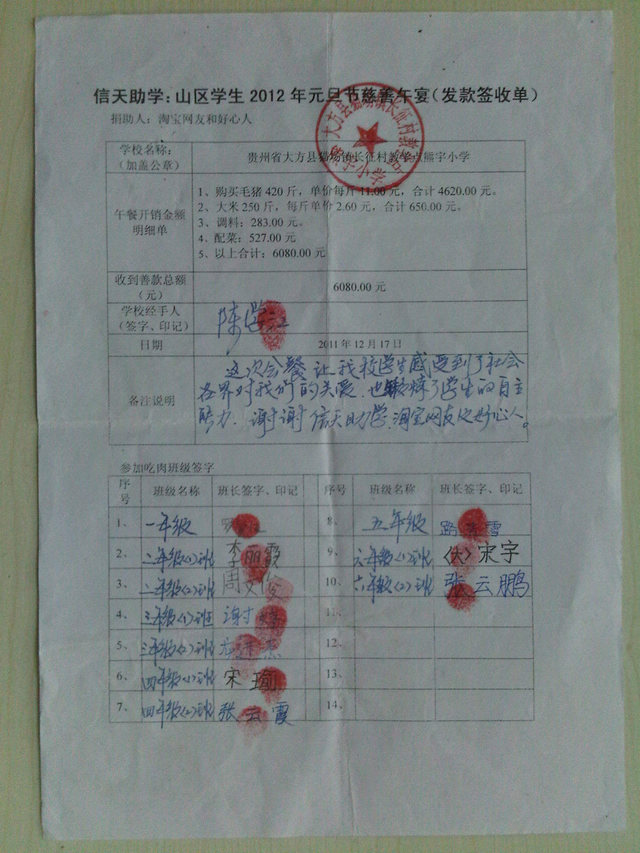 信天助学：山区学生 2012 年元旦节慈善午宴（发款签收单）
捐助人：淘宝网友和好心人
学校名称：
（加盖公章）
贵州省大方县猫场镇长征村教学点熊字小学
午餐开销金额
明细单
1、购买毛猪 420 斤，单价每斤 11.00 元，合计 4620.00 元。
2、大米 250 斤，每斤单价 2.60 元，合计 650.00 元。
3、调料：283.00 元。
4、配菜：527.00 元
5、以上合计：6080.00 元
收到善款总额
（元）
6080.00 元
学校经手人
（签字、印记）
日期
2011 年 12 月 17 日
备注说明
这次会餐让我校学生感受到了社会
各界对我们的关爱，也锻炼了学生的自主
能力。谢谢信天助学、淘宝网友及好心人。
参加吃肉班级签字
序号 班级名称 班长签字、印记 序号 班级名称 班长签字、印记
1、 一年级 8、 五年级
2、 二年级(1)班 李丽霞 9、 六年级(1)班 〈大〉宋宇
3、 二年级(2)班 周文 10、 六年级(2)班 张云鹏
4、 三年级(1)班 谢 11、
5、 三年级(2)班 12、
6、 四年级(1)班 宋 13、
7、 四年级(2)班 张云霞 14、